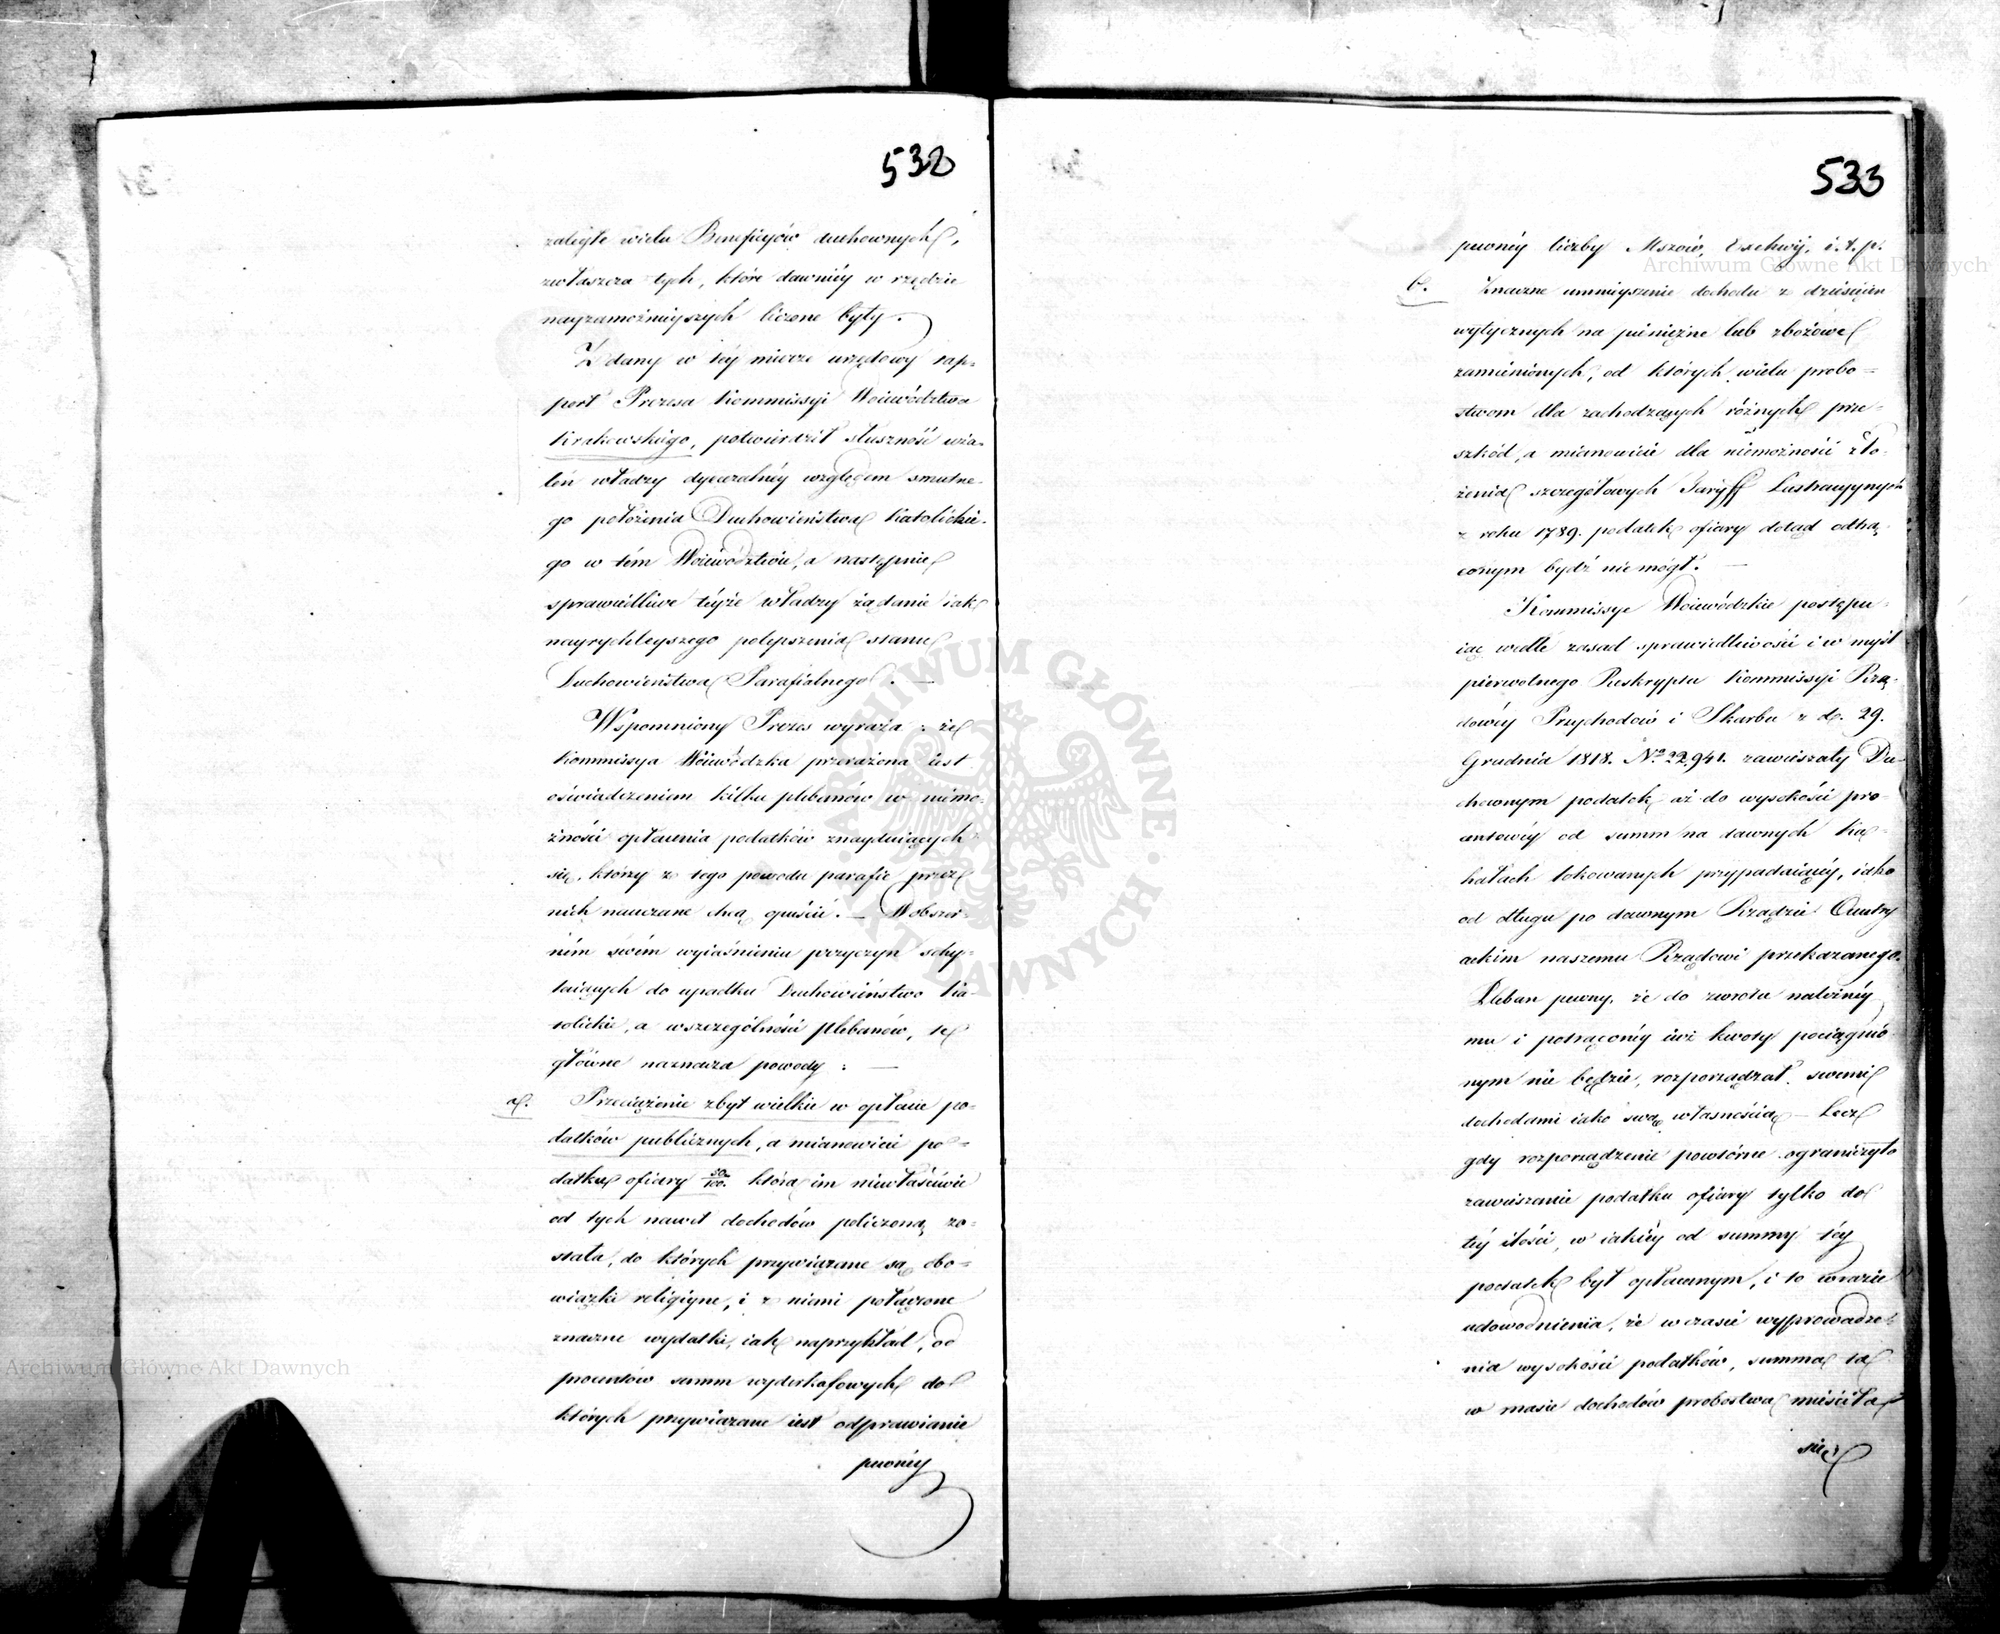 532
zaległe wielu Beneficyów duchownych,
zwłaszcza tych, które dawniéy w rzędzie
nayzamożnieyszych liczone były.
Zdany w téy mierze urzędowy rap-
port Prezesa Kommissyi Woiewództwa
Krakowskiego, potwierdził słuszność uża-
leń władzy dyecezalnéy względem smutne-
go położenia Duchowieństwa Katolickie-
go w tém Woiewództwie, a następnie
sprawiedliwe téyże władzy żądanie iak
nayrychleyszego polepszenia stanu
Duchowieństwa Parafialnego. —
Wspomniony Prezes wyraża: że
Kommissya Woiewódzka przerażona iest
oświadczeniem kilku plebanów w niemo-
żności opłacenia podatków znayduiących
się, którzy z tego powodu parafie przez
nich nauczane chcą opuścić. — W obszer-
ném swém wyiaśnieniu przyczyn schy-
laiących do upadku Duchowieństwo Ka-
tolickie, a w szczególności plebanów, te
główne naznacza powody: —
a. Przeciążenie zbyt wielkie w opłacie po-
datków publicznych, a mianowicie po-
datku ofiary 50/100. która im niewłaściwie
od tych nawet dochodów policzoną zo-
stała, do których przywiązane są obo-
wiązki religiyne, i z niemi połączone
znaczne wydatki, iak naprzykład, od
procentów summ wyderkafowych do
których przywiązane iest odprawianie
pewnéy
533
pewnéy liczby Mszów, Exekwij, i. t. p.
b. Znaczne umnieyszenie dochodu z dziesięcin
wytycznych na pieniężne lub zbożowe
zamienionych, od których wielu probo-
stwom dla zachodzących różnych prze-
szkód, a mianowicie dla niemożności zło-
żenia szczegółowych Taryff Lustracyynych
z roku 1789. podatek ofiary dotąd odtrą-
conym bydź nie mógł. —
Kommissye Woiewódzkie postępu-
iąc wedle zasad sprawiedliwości i w myśl
pierwotnego Reskryptu Kommissyi Rzą-
dowéy Przychodów i Skarbu z d. 29.
Grudnia 1818. No 22,941. zawieszały Du-
chownym podatek aż do wysokości pro-
centowéy od summ na dawnych Ka-
hałach lokowanych przypadaiącéy, iako
od długu po dawnym Rządzie Austry
ackim naszemu Rządowi przekazanego.
Pleban pewny, że do zwrotu należnéy
mu i potrąconéy iuż kwoty pociągnio-
nym nie będzie, rozporządzał swemi
dochodami iako swą własnością — Lecz
gdy rozporządzenie powtórne ograniczyło
zawieszanie podatku ofiary tylko do
téy ilości, w iakiéy od summy téy
podatek był opłacanym, i to w razie
udowodnienia, że w czasie wyprowadze-
nia wysokości podatków, summa ta
w masie dochodów probostwa mieściła
się
Archiwum Główne Akt Dawnych
Archiwum Główne Akt Dawnych
ARCHIWUM GŁÓWNE AKT DAWNYCH